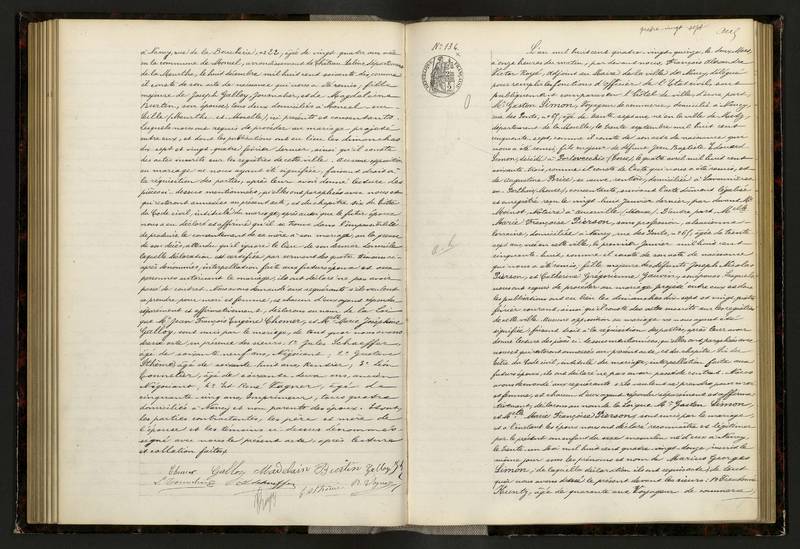 à Nancy, rue de la Boucherie, n° 22, âgé de vingt quatre ans, né
en la commune de Moncel, arrondissement de Château Salins, département
de la Meurthe, le huit décembre mil huit cent soixante dix, comme
il conste de son acte de naissance qui nous a été remis, fille
majeure de Joseph Galloy, Journalier, et de Magdeleine
Burtin, son épouse, tous deux domiciliés à Moncel-sur-
Seille (Meurthe et Moselle), ici présents et consentants.
Lesquels nous ont requis de procéder au mariage projeté
entre eux, et dont les publications ont eu lieu les dimanches
dix sept et vingt quatre février dernier, ainsi qu'il conste
des actes inscrits sur les registres de cette ville. Aucune opposition
au mariage ne nous ayant été signifiée, faisant droit à
la réquisition des parties, après leur avoir donné lecture des
pièces ci-dessus mentionnées, qu'elles ont paraphées avec nous et
qui resteront annexées au présent acte, et du chapitre six du titre
du Code civil, intitulé du mariage, après aussi que le futur époux
nous a eu déclaré et affirmé qu'il se trouve dans l'impossibilité
de produire le consentement de sa mère à son mariage, ou la preuve
de son décès, attendu qu'il ignore le lieu de son dernier domicile
laquelle déclaration est certifiée, par serment des quatre témoins ci-
après dénommés, interpellation faite aux futurs époux et aux
personnes autorisant le mariage, ils ont déclaré ne pas avoir
passé de contrat. Nous avons demandé aux requérants s'ils veulent
se prendre pour mari et femme, et chacun d'eux ayant répondu
séparément et affirmativement, déclarons au nom de la Loi
que Mr. Jean François Eugène Thenot, et Melle Marie Joséphine
Galloy sont unis par le mariage, de tout quoi nous avons
dressé acte en présence des sieurs: 1° Jules Schaeffer
âgé de soixante neuf ans, Négociant, 2° Gustave
âgé de soixante huit ans, Rentier, 3° Léon
Tonnelier, âgé de soixante deux ans, ancien
Négociant, 4° et René Vagner, âgé de
cinquante cinq ans, Imprimeur, tous quatre
domiciliés à Nancy et non parents des époux. Et ont
les parties contractantes, les père et mère de
l'épouse et les témoins ci-dessus dénommés
signé avec nous le présent acte, après lecture
et collation faites.
Thenot Galloy Madelain Burtin Galloy
L. Tonnelier J. Schaeffer R. Vagner
N° 134
quatre vingt sept
L'an mil huit cent quatre vingt quinze, le deux Mars
à onze heures du matin, par devant nous François Alexandre
Victor Noyé, adjoint au Maire de la ville de Nancy, délégué
pour remplir les fonctions d'Officier de l'Etat civil, sont
publiquement comparus en l'hôtel de ville, d'une part,
Mr. Gaston Simon, Voyageur de commerce, domicilié à Nancy,
rue des Ponts, n° 65, âgé de trente sept ans, né en la ville de
département de la Meurthe, le trente septembre mil huit cent
cinquante sept, comme il conste de son acte de naissance qui
nous a été remis, fils majeur de défunt Jean Baptiste Edouard
Simon, décédé à Portovecchio (Corse), le quatre avril mil huit cent
soixante trois, comme il conste de l'acte qui nous a été remis, et
de Augustine sa veuve, rentière, domiciliée à
en consentante, suivant l'acte dûment légalisé
et enregistré reçu le vingt huit Janvier dernier, par devant Me
Moinot, Notaire à D'autre part, Melle
Marie Françoise Pierson, sans profession, alsacienne-
lorraine, domiciliée à Nancy, rue des Ponts, n° 65, âgée de trente
sept ans, née en cette ville, le premier janvier mil huit cent
cinquante huit, comme il conste de son acte de naissance
qui nous a été remis, fille majeure des défunts Joseph Nicolas
Pierson, et Catherine Grégorienne Janvion, son épouse. Lesquels
nous ont requis de procéder au mariage projeté entre eux, et dont
les publications ont eu lieu les dimanches dix sept et vingt quatre
février courant, ainsi qu'il conste des actes inscrits sur les registres
de cette ville. Aucune opposition au mariage ne nous ayant été
signifiée; faisant droit à la réquisition des parties, après leur avoir
donné lecture des pièces ci-dessus mentionnées, qu'elles ont paraphées avec
nous et qui resteront annexées au présent acte, et du chapitre six du
titre du Code civil, intitulé du mariage, interpellation faite aux
futurs époux, ils ont déclaré ne pas avoir passé de contrat. Nous
avons demandé aux requérants s'ils veulent se prendre pour mari
et femme, et chacun d'eux ayant répondu séparément et affirma-
tivement, déclarons au nom de la Loi que Mr. Gaston Simon,
et Melle Marie Françoise Pierson, sont unis par le mariage,
et à l'instant les époux nous ont déclaré reconnaître et légitimer
par le présent un enfant du sexe masculin né d'eux à Nancy,
le trente un Mai mil huit cent quatre vingt douze, inscrit le
même jour sous les prénoms et nom de Marius Georges
Simon, de laquelle déclaration ils ont requis acte; de tout
quoi nous avons dressé le présent devant les sieurs: 1°
Kuentz, âgé de quarante ans Voyageur de commerce,